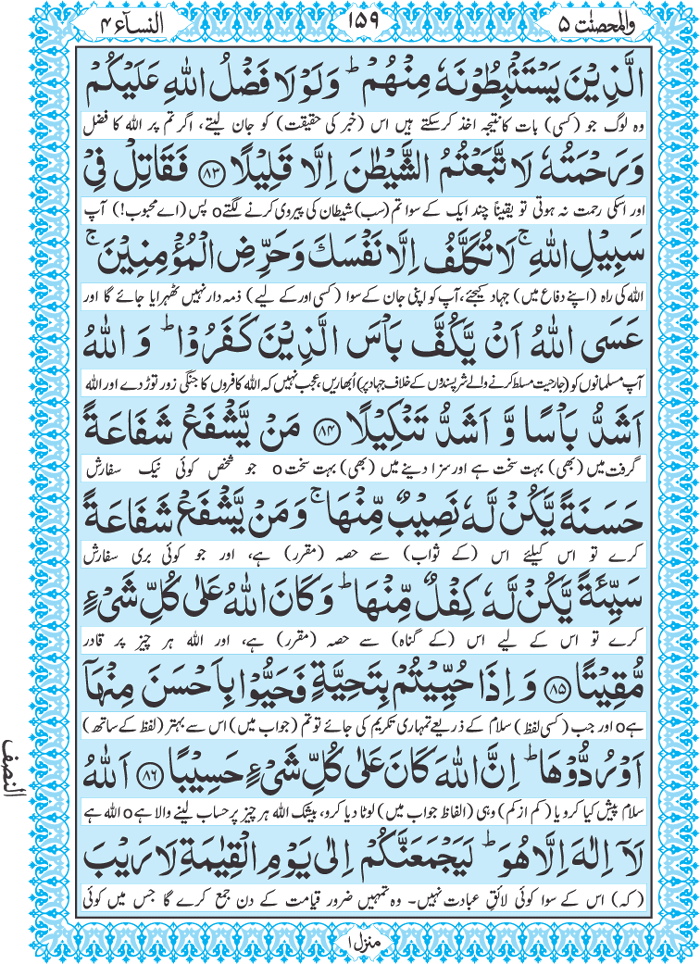 والمحصنت ۵
۱۵۹
النسآء ۴
الَّذِيْنَ يَسْتَنْۢبِطُوْنَهٗ مِنْهُمْ ؕ وَ لَوْ لَا فَضْلُ اللّٰهِ عَلَيْكُمْ
وہ لوگ جو (کسی) بات کا نتیجہ اخذ کرسکتے ہیں اس (خبر کی حقیقت) کو جان لیتے، اگر تم پر اللہ کا فضل
وَ رَحْمَتُهٗ لَاتَّبَعْتُمُ الشَّيْطٰنَ اِلَّا قَلِيْلًا ﴿۸۳﴾ فَقَاتِلْ فِيْ
اور اسکی رحمت نہ ہوتی تو یقیناً چند ایک کے سوا تم (سب) شیطان کی پیروی کرنے لگتے o پس (اے محبوب!) آپ
سَبِيْلِ اللّٰهِ ۚ لَا تُكَلَّفُ اِلَّا نَفْسَكَ وَ حَرِّضِ الْمُؤْمِنِيْنَ ۚ
اللہ کی راہ (اپنے دفاع میں) جہاد کیجئے، آپ کو اپنی جان کے سوا (کسی اور کے لیے) ذمہ دار نہیں ٹھہرایا جائے گا اور
عَسَى اللّٰهُ اَنْ يَّكُفَّ بَاْسَ الَّذِيْنَ كَفَرُوْا ؕ وَ اللّٰهُ
آپ مسلمانوں کو (جارحیت مسلط کرنے والے شرپسندوں کے خلاف جہاد پر) اُبھاریں، عجب نہیں کہ اللہ کافروں کا جنگی زور توڑ دے اور اللہ
اَشَدُّ بَاْسًا وَّ اَشَدُّ تَنْكِيْلًا ﴿۸۴﴾ مَنْ يَّشْفَعْ شَفَاعَةً
گرفت میں (بھی) بہت سخت ہے اور سزا دینے میں (بھی) بہت سخت o جو شخص کوئی نیک سفارش
حَسَنَةً يَّكُنْ لَّهٗ نَصِيْبٌ مِّنْهَا ۚ وَ مَنْ يَّشْفَعْ شَفَاعَةً
کرے تو اس کیلئے اس (کے ثواب) سے حصہ (مقرر) ہے، اور جو کوئی بری سفارش
سَيِّئَةً يَّكُنْ لَّهٗ كِفْلٌ مِّنْهَا ؕ وَ كَانَ اللّٰهُ عَلٰى كُلِّ شَيْءٍ
کرے تو اس کے لیے اس (کے گناہ) سے حصہ (مقرر) ہے، اور اللہ ہر چیز پر قادر
مُّقِيْتًا ﴿۸۵﴾ وَ اِذَا حُيِّيْتُمْ بِتَحِيَّةٍ فَحَيُّوْا بِاَحْسَنَ مِنْهَاۤ
ہے o اور جب (کسی لفظ) سلام کے ذریعے تمہاری تکریم کی جائے تو تم (جواب میں) اس سے بہتر (لفظ کے ساتھ)
اَوْ رُدُّوْهَا ؕ اِنَّ اللّٰهَ كَانَ عَلٰى كُلِّ شَيْءٍ حَسِيْبًا ﴿۸۶﴾ اَللّٰهُ
سلام پیش کیا کرو یا (کم از کم) وہی (الفاظ جواب میں) لوٹا دیا کرو، بیشک اللہ ہر چیز پر حساب لینے والا ہے o اللہ ہے
لَاۤ اِلٰهَ اِلَّا هُوَ ؕ لَيَجْمَعَنَّكُمْ اِلٰى يَوْمِ الْقِيٰمَةِ لَا رَيْبَ
(کہ) اس کے سوا کوئی لائقِ عبادت نہیں۔ وہ تمہیں ضرور قیامت کے دن جمع کرے گا جس میں کوئی
النصف
منزل ۱